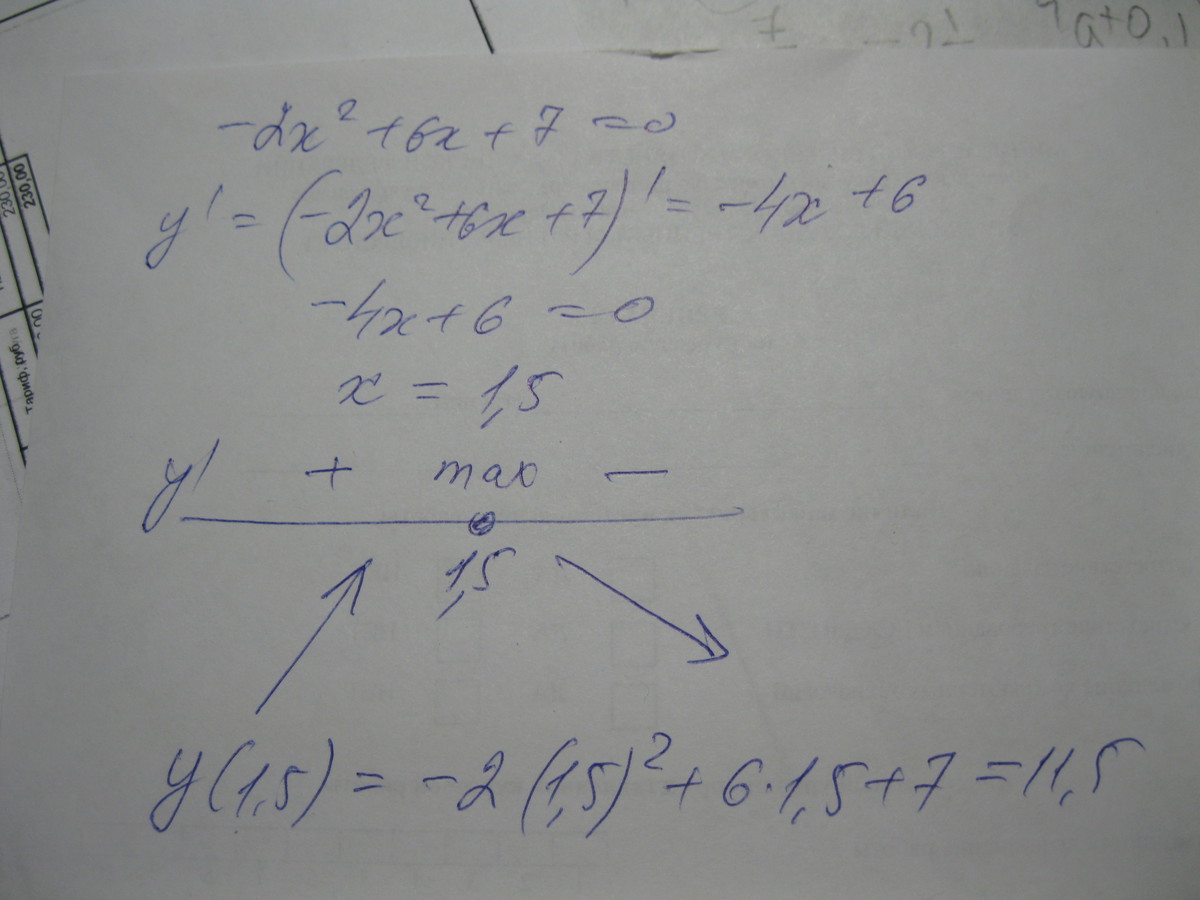 7
a+0,1
230,00
230,00
тариф, руб
-2x² + 6x + 7 = 0
y' = (-2x² + 6x + 7)' = -4x + 6
-4x + 6 = 0
x = 1,5
y' + max −
1,5
y(1,5) = -2(1,5)² + 6·1,5 + 7 = 11,5